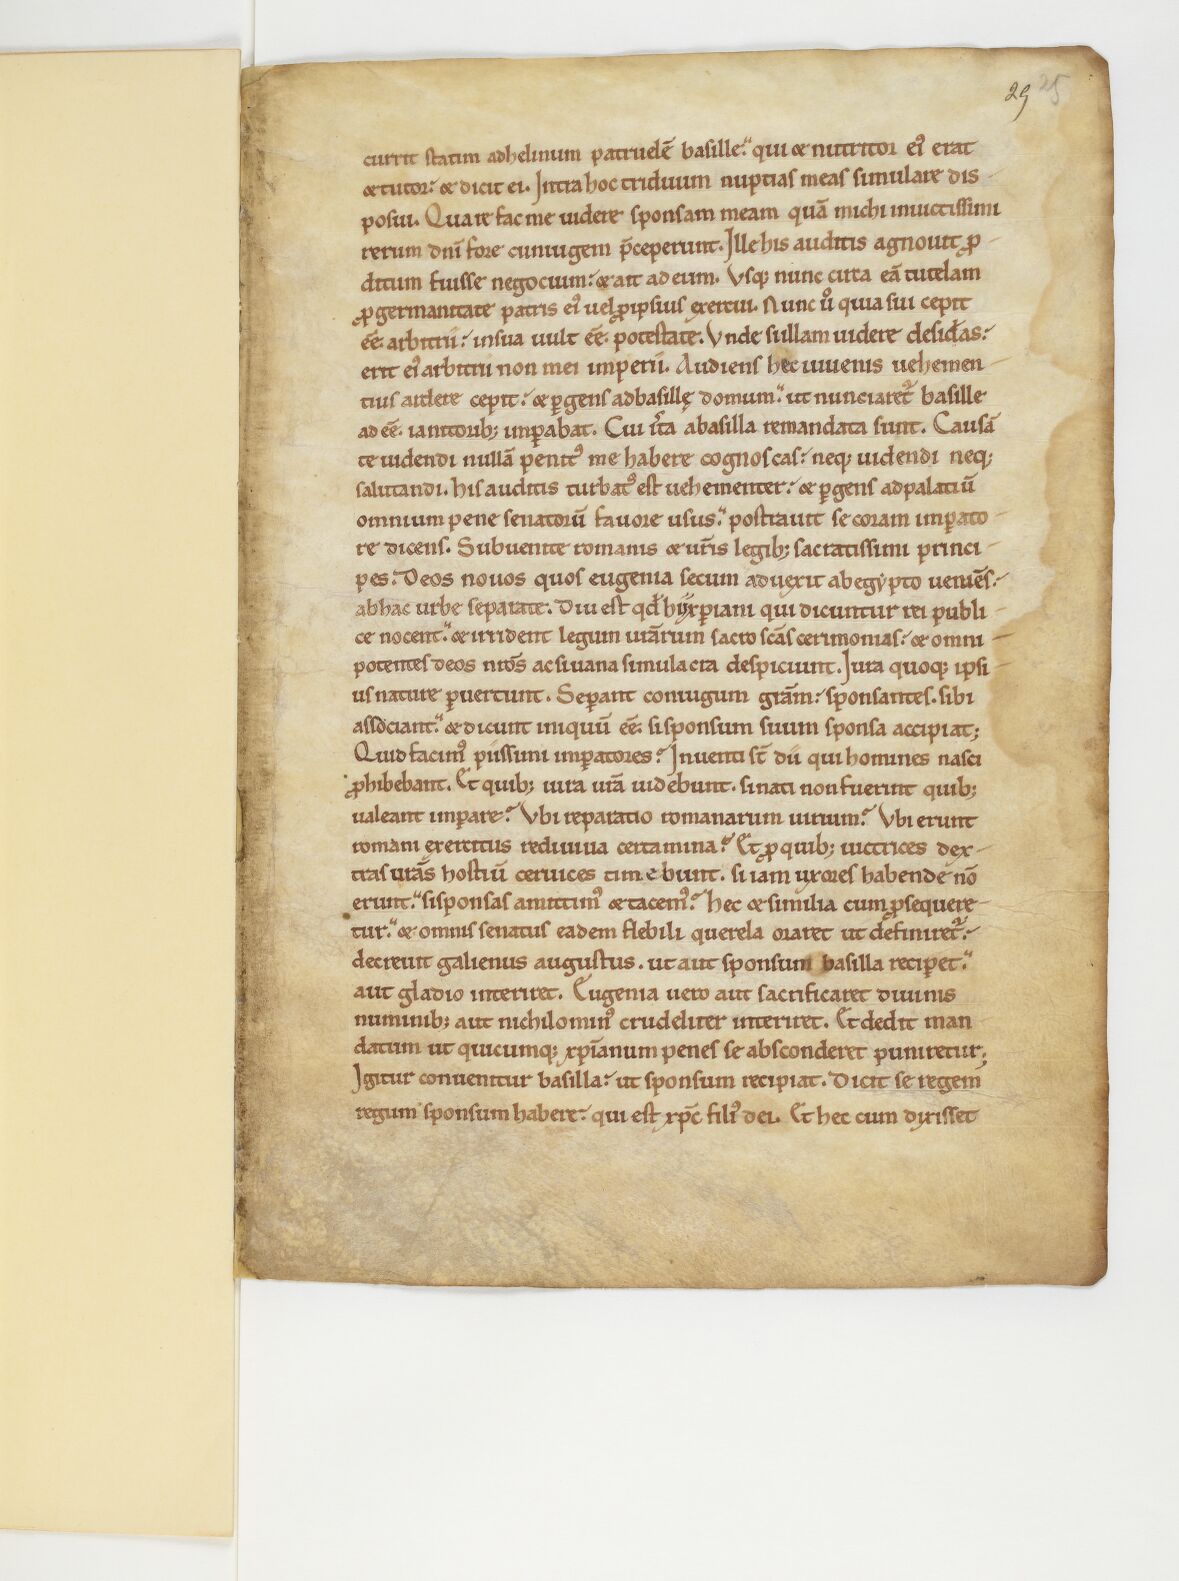 29 25
currit statim adhelinum patruelē basille. qui & nutritor ei᾽ erat
& tutor. & dicit ei. Intra hoc triduum nuptias meas simulare dis-
posui. Quare fac me uidere sponsam meam quā michi inuictissimi
rerum dn̄i fore coniugem p̄ceperunt. Ille his auditis agnouit ꝓ-
ditum fuisse negocium. & ait ad eum. Vsq; nunc circa eā tutelam
ꝓ germanitate patris ei᾽ uel ꝓ ipsius exercui. Nunc ů quia sui cepit
eē arbitrii. in sua uult eē potestate. Vnde si illam uidere desid̄as.
erit ei᾽ arbitrii non mei imperii. Audiens hec iuuenis uehemen-
tius ardere cepit. & ꝑgens ad basillę domum. ut nunciaret᾽ basille
adeē. ianitorib; imꝑabat. Cui ista abasilla remandata sunt. Causā
te uidendi nullā penit᾽ me habere cognoscas. neq; uidendi neq;
salutandi. his auditis turbat᾽ est uehementer. & ꝑgens ad palatiū
omnium pene senatorū fauore usus. postrauit se coram imꝑato-
re dicens. Subuenite romanis & ur̄is legib; sacratissimi princi-
pes. Deos nouos quos eugenia secum aduexit ab egẏpto ueniēs.
ab hac urbe separate. Diu est qd̄ hii xp̄iani qui dicuntur rei publi-
ce nocent. & irrident legum urārum sacro scās cerimonias. & omni-
potentes deos nr̄os ac si uana simulacra despiciunt. Iura quoq; ipsi-
us nature ꝑuertunt. Seꝑant coniugum grām. sponsantes. sibi
associant. & dicunt iniquū eē. si sponsum suum sponsa accipiat;
Quid facim᾽ piissimi imꝑatores? Inuenti st̄ dii qui homines nasci
ꝓhibebant. Et quib; iura urā uidebunt. si nati non fuerint quib;
ualeant imꝑare? Vbi reparatio romanarum uirium? Vbi erunt
romani exercitus rediuiua certamina? Et ꝓ quib; uictrices dex-
tras urās hostiū ceruices timebunt. si iam uxores habende nō
erunt. si sponsas amittim᾽ & tacem᾽? hec & similia cum ꝓsequere-
tur. & omnis senatus eadem flebili querela oraret ut definiret᾽.
decreuit galienus augustus. ut aut sponsum basilla reciꝑet.
aut gladio interiret. Eugenia uero aut sacrificaret diuinis
numinib; aut nichilomin᾽ crudeliter interiret. Et dedit man
datum ut quicumq; xp̄ianum penes se absconderet puniretur;
Igitur conuenitur basilla. ut sponsum recipiat. Dicit se regem
regum sponsum habere. qui est xp̄c fili᾽ dei. Et hec cum dixisset